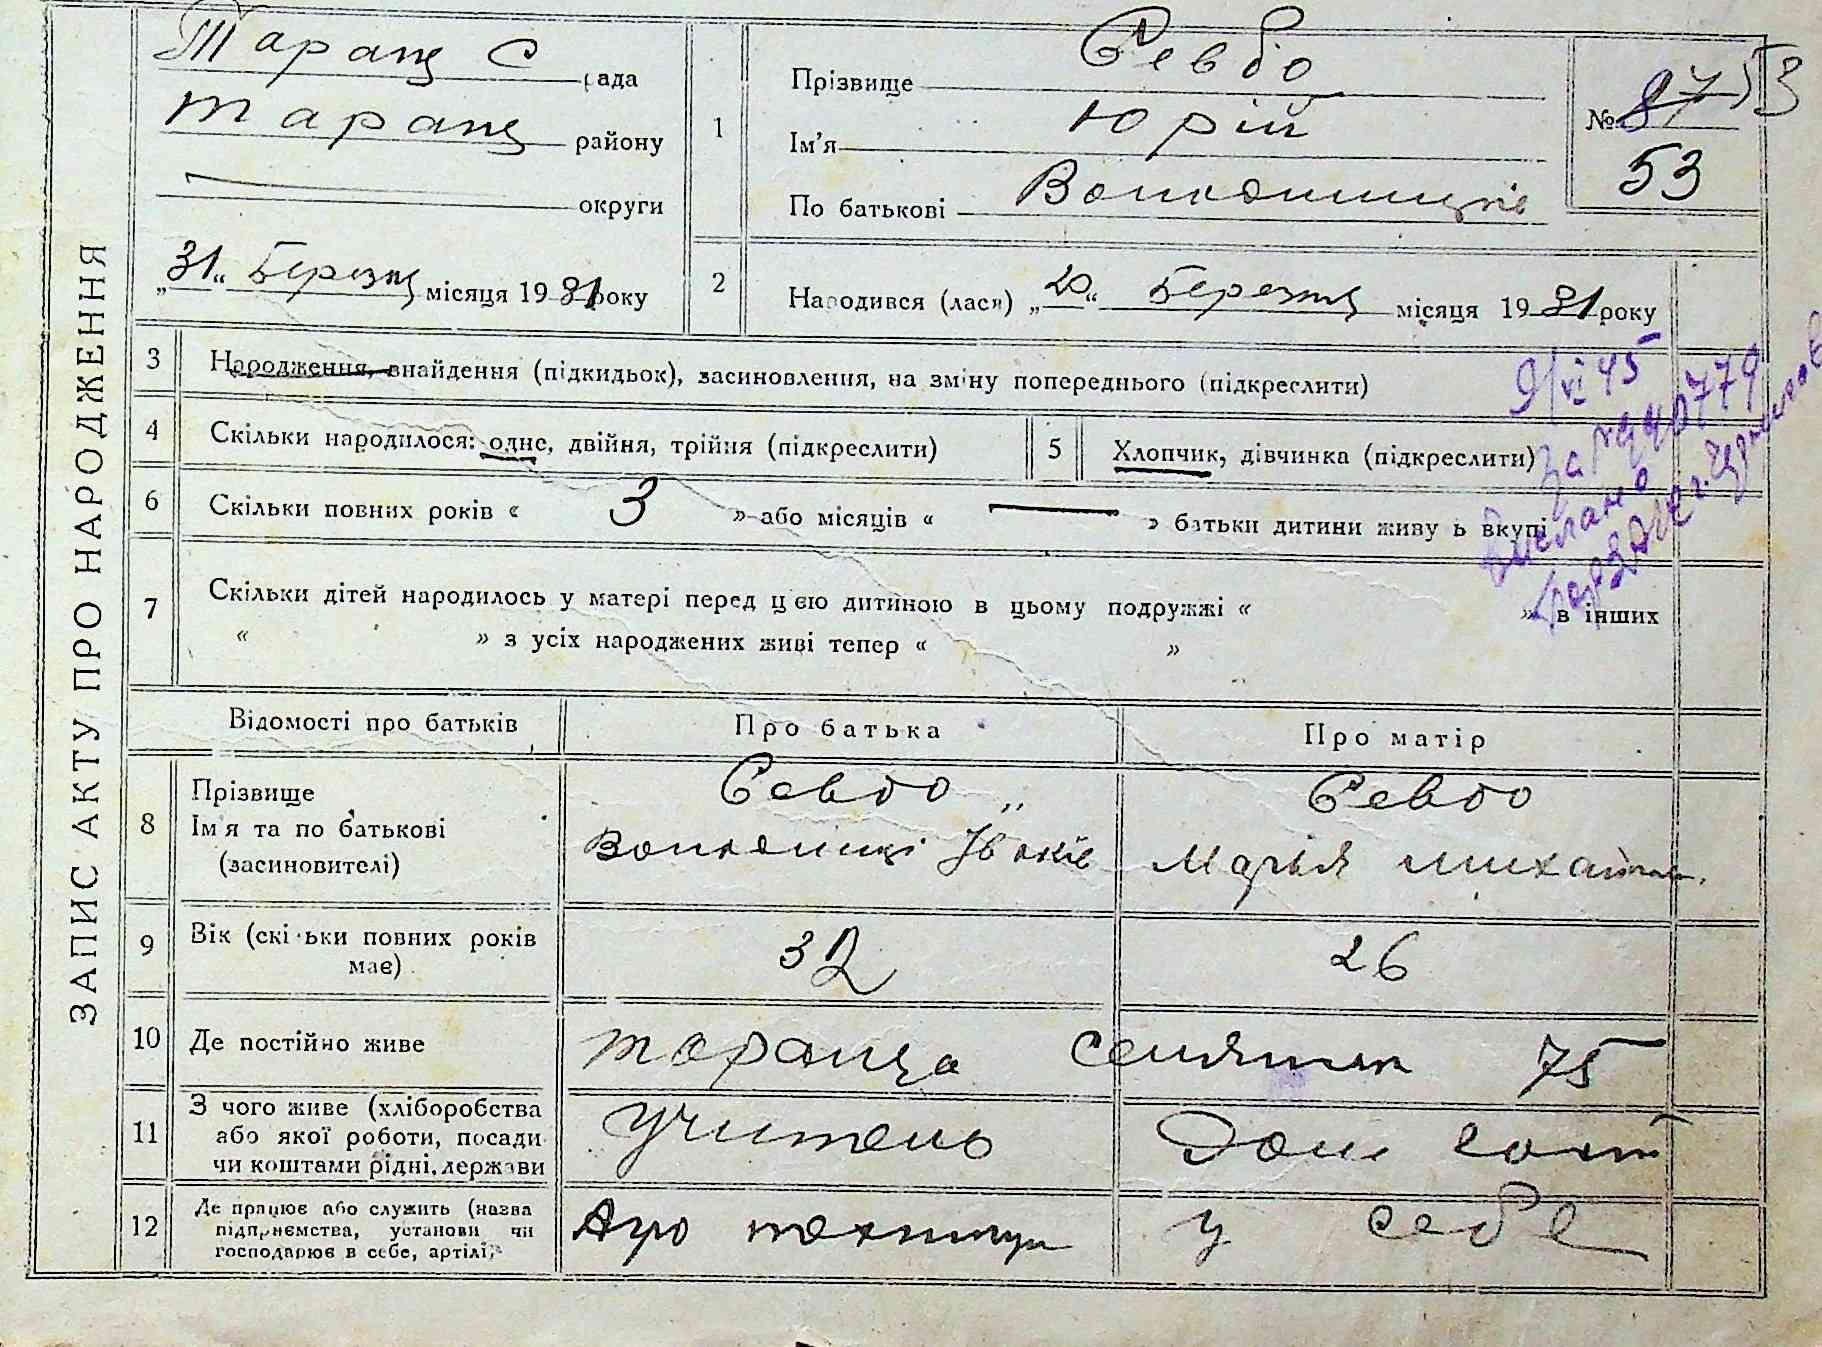 ЗАПИС АКТУ ПРО НАРОДЖЕННЯ
Таращ С рада
Таращ району
округи
„31“ Березня місяця 1931 року
1
Прізвище Севбо
Ім'я Юрій
По батькові
№ 87 53
53
2
Народився (лася) „20“ Березня місяця 1931 року
3 Народження, знайдення (підкидьок), засиновлення, на зміну попереднього (підкреслити)
9/VI 45
4 Скільки народилося: одне, двійня, трійня (підкреслити)
5 Хлопчик, дівчинка (підкреслити)
6 Скільки повних років « 3 » або місяців « — » батьки дитини живу ь вкупі
7 Скільки дітей народилось у матері перед цією дитиною в цьому подружжі « » в інших
« » з усіх народжених живі тепер « »
Відомості про батьків
Про батька
Про матір
8 Прізвище
Ім'я та по батькові
(засиновителі)
Севбо
Севбо
Марія Михайл.
9 Вік (скільки повних років
має)
32
26
10 Де постійно живе
Тараща 75
11 З чого живе (хліборобства
або якої роботи, посади
чи коштами рідні, держави
Учитель
Дом госп
12 Де працює або служить (назва
підприємства, установи чи
господарює в себе, артілі,
Агро
у себе